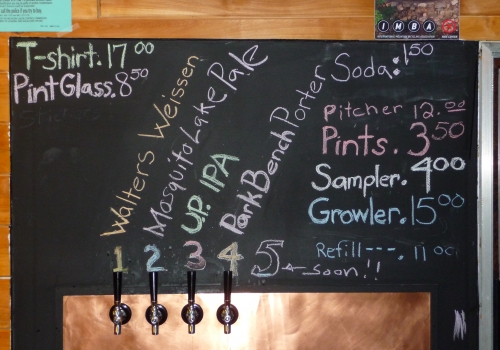 T-shirt. 17 00
Pint Glass. 8 50
Walters Weissen
Mosquito Lake Pale
U.P. IPA
Park Bench Porter
1 2 3 4 5 ← soon!!
Soda: 1 50
Pitcher 12. 00
Pints. 3 50
Sampler. 4 00
Growler. 15 00
Refill ---. 11 00
IMBA